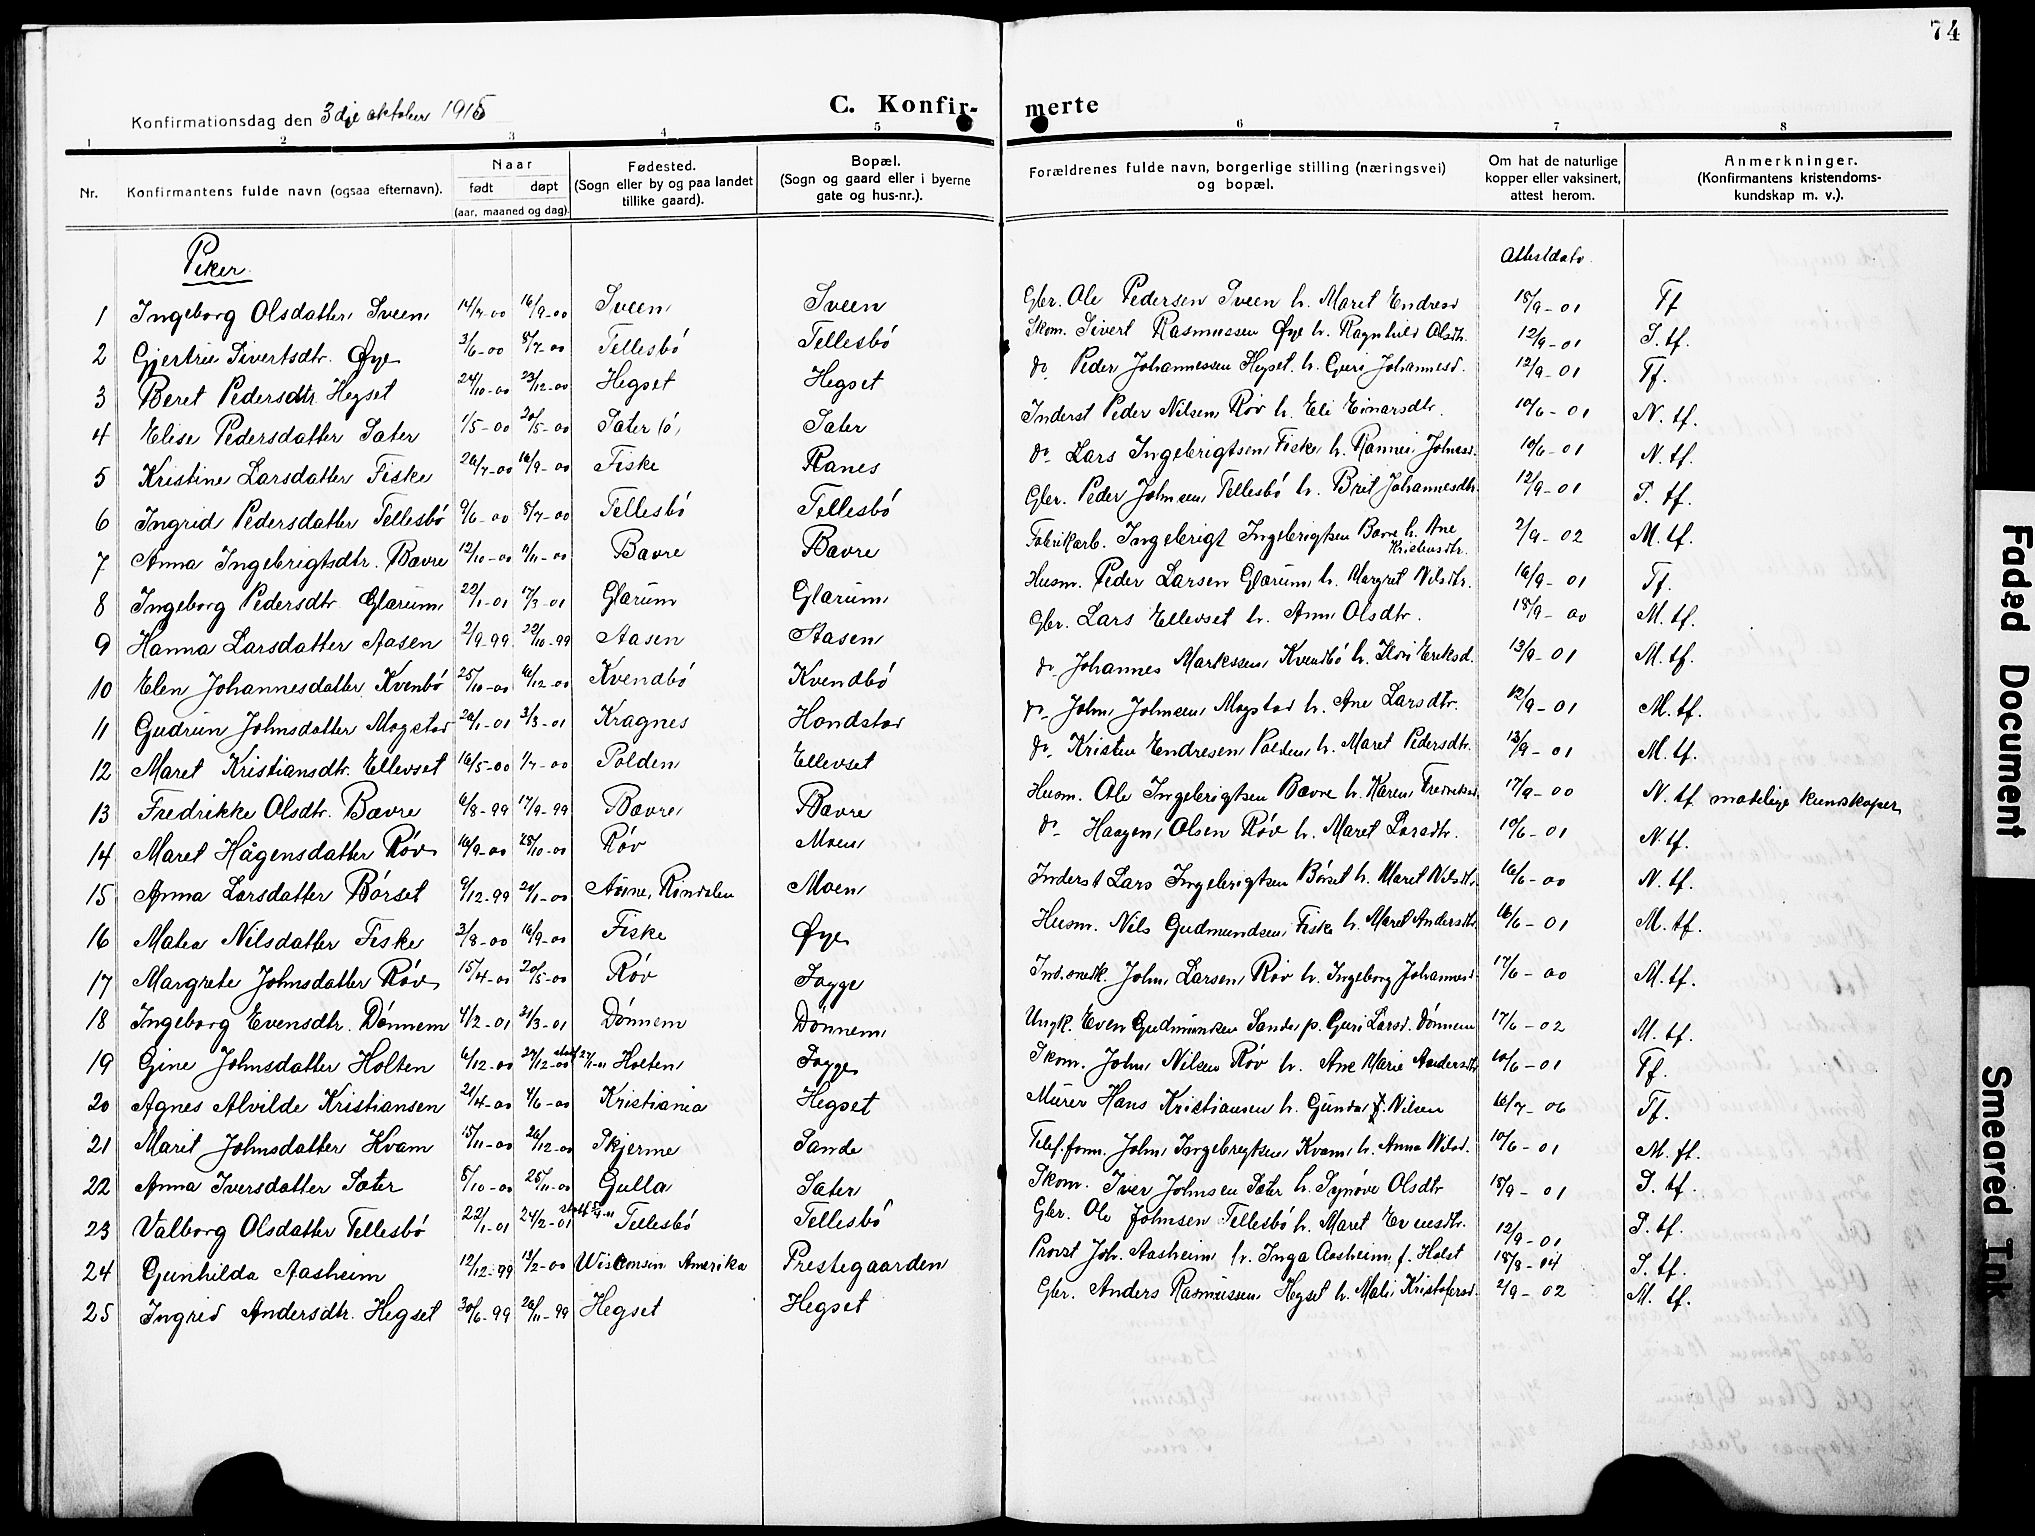 74
Konfirmationsdag den 3dje oktober 1915
C. Konfir- merte
1 2 3 4 5 6 7 8
Nr. Konfirmantens fulde navn (ogsaa efternavn). Naar født døpt (aar, maaned og dag). Fødested. (Sogn eller by og paa landet tillike gaard). Bopæl. (Sogn og gaard eller i byerne gate og hus-nr.). Forældrenes fulde navn, borgerlige stilling (næringsvei) og bopæl. Om hat de naturlige kopper eller vaksinert, attest herom. Anmerkninger. (Konfirmantens kristendoms- kundskap m. v.).
Piker. Attestdato
1 Ingeborg Olsdatter Sveen 14/7-00 16/9-00 Sveen Sveen Gbr. Ole Pedersen Sveen h. Maret Endresd 18/9-01 Tf
2 Gjertru Sivertsdtr. Øye 3/6-00 8/7-00 Tellesbö Tellesbö Skom. Sivert Rasmussen Øye h. Ragnhild Olsdtr. 12/9-01 S. tf.
3 Beret Pedersdtr. Hegset 24/10-00 23/12-00 Hegset Hegset do. Peder Johannessen Hegset h. Guri Johannesd. 12/9-01 Tf.
4 Elise Pedersdatter Sæter 1/5-00 20/5-00 Sæter Sæter Inderst Peder Nilsen Röv h. Eli Einarsdtr. 10/6-01 N. tf.
5 Kristine Larsdatter Fiske 26/7-00 16/9-00 Fiske Ranes do. Lars Ingebrigtsen Fiske h. Rannei Johnsd. 10/6-01 N. tf.
6 Ingrid Pedersdatter Tellesbö 9/6-00 8/7-00 Tellesbö Tellesbö Gbr. Peder Johnsen Tellesbö h. Brit Johannesdtr. 12/9-01 S. tf.
7 Anna Ingebrigtsdtr. Bævre 12/10-00 11/11-00 Bævre Bævre Fabrikarb. Ingebrigt Ingebrigtsen Bævre h. Ane Kristensdtr. 2/9-02 M. tf.
8 Ingeborg Pedersdtr. Glærum 22/1-01 17/3-01 Glærum Glærum Husm. Peder Larsen Glærum h. Margret Nilsdtr. 16/9-01 Tf.
9 Hanna Larsdatter Aasen 2/9-99 22/10-99 Aasen Aasen Gbr. Lars Ellevset h. Ann Olsdtr. 18/9-00 M. tf.
10 Elen Johannesdatter Kvenbö 25/10-00 6/12-00 Kvendbö Kvendbö do. Johannes Markssen Kvendbö h. Kari Eriksd. 13/9-01 M. tf.
11 Gudrun Johnsdatter Mogstad 26/1-01 3/3-01 Kragnes Hondstad do. John Johnsen Mogstad h. Ane Larsdtr. 12/9-01 M. tf.
12 Maret Kristiansdtr. Ellevset 16/5-00 1/7-00 Polden Ellevset do. Kristen Endresen Polden h. Maret Pedersdtr. 13/9-01 M. tf.
13 Fredrikke Olsdtr. Bævre 6/8-99 17/9-99 Bævre Bævre Husm. Ole Ingebrigtsen Bævre h. Karen Fredriksd. 17/9-00 N. tf. matelige kunskaper
14 Maret Hågensdatter Röv 16/9-00 28/10-00 Röv Moen do. Haagen Olsen Röv h. Maret Larsdtr. 10/6-01 N. tf.
15 Anna Larsdatter Börset 9/12-99 21/1-00 Aune, Rindalen Moen Inderst Lars Ingebrigtsen Börset h. Maret Nilsdtr. 16/6-00 N. tf.
16 Matea Nilsdatter Fiske 3/8-00 16/9-00 Fiske Øye Husm. Nils Gudmundsen Fiske h. Maret Andersdtr 16/6-01 M. tf.
17 Margrete Johnsdatter Röv 15/4-00 20/5-00 Röv Sogge Ind. snedk. John Larsen Röv h. Ingeborg Johannesd. 17/6-00 M. tf.
18 Ingeborg Evensdtr. Dönnem 4/2-01 31/3-01 Dönnem Dönnem Ungk. Even Gudmunsen Sande p. Guri Larsd. Dönnem 17/6-02 M. tf.
19 Gine Johnsdatter Holten 6/12-00 27/12-00 Holten Sogge Skom. John Nilsen Röv h. Ane Marie Andersdtr 10/6-01 Tf.
20 Agnes Alvilde Kristiansen 21/4-00 4/6-00 Kristiania Hegset Murer Hans Kristiansen h. Gunda f. Nilsen 16/7-06 Tf.
21 Marit Johnsdatter Kvam 15/11-00 26/12-00 Skjerme Sande Telef.form. John Ingebrigtsen Kvam h. Anna Nilsd. 10/6-01 M. ft.
22 Anna Iversdatter Sæter 8/10-00 25/11-00 Gulla Sæter Skom. Iver Johnsen Sæter h. Synöve Olsdtr 18/9-01 S. tf.
23 Valborg Olsdatter Tellesbö 22/1-01 24/2-01 Tellesbö Tellesbö Gbr. Ole Johnsen Tellesbö h. Maret Evensdtr. 12/9-01 S. tf.
24 Gunhilda Aasheim 12/12-99 13/2-00 Wisconsin Amerika Prestegaarden Provst Joh. Aasheim h. Inga Aasheim f. Holst 18/8-04 S. tf.
25 Ingrid Andersdtr. Hegset 30/6-99 26/11-99 Hegset Hegset Gbr. Anders Rasmussen Hegset h. Mali Kristofersd. 2/9-02 M. tf.
Faded Document
Smeared Ink